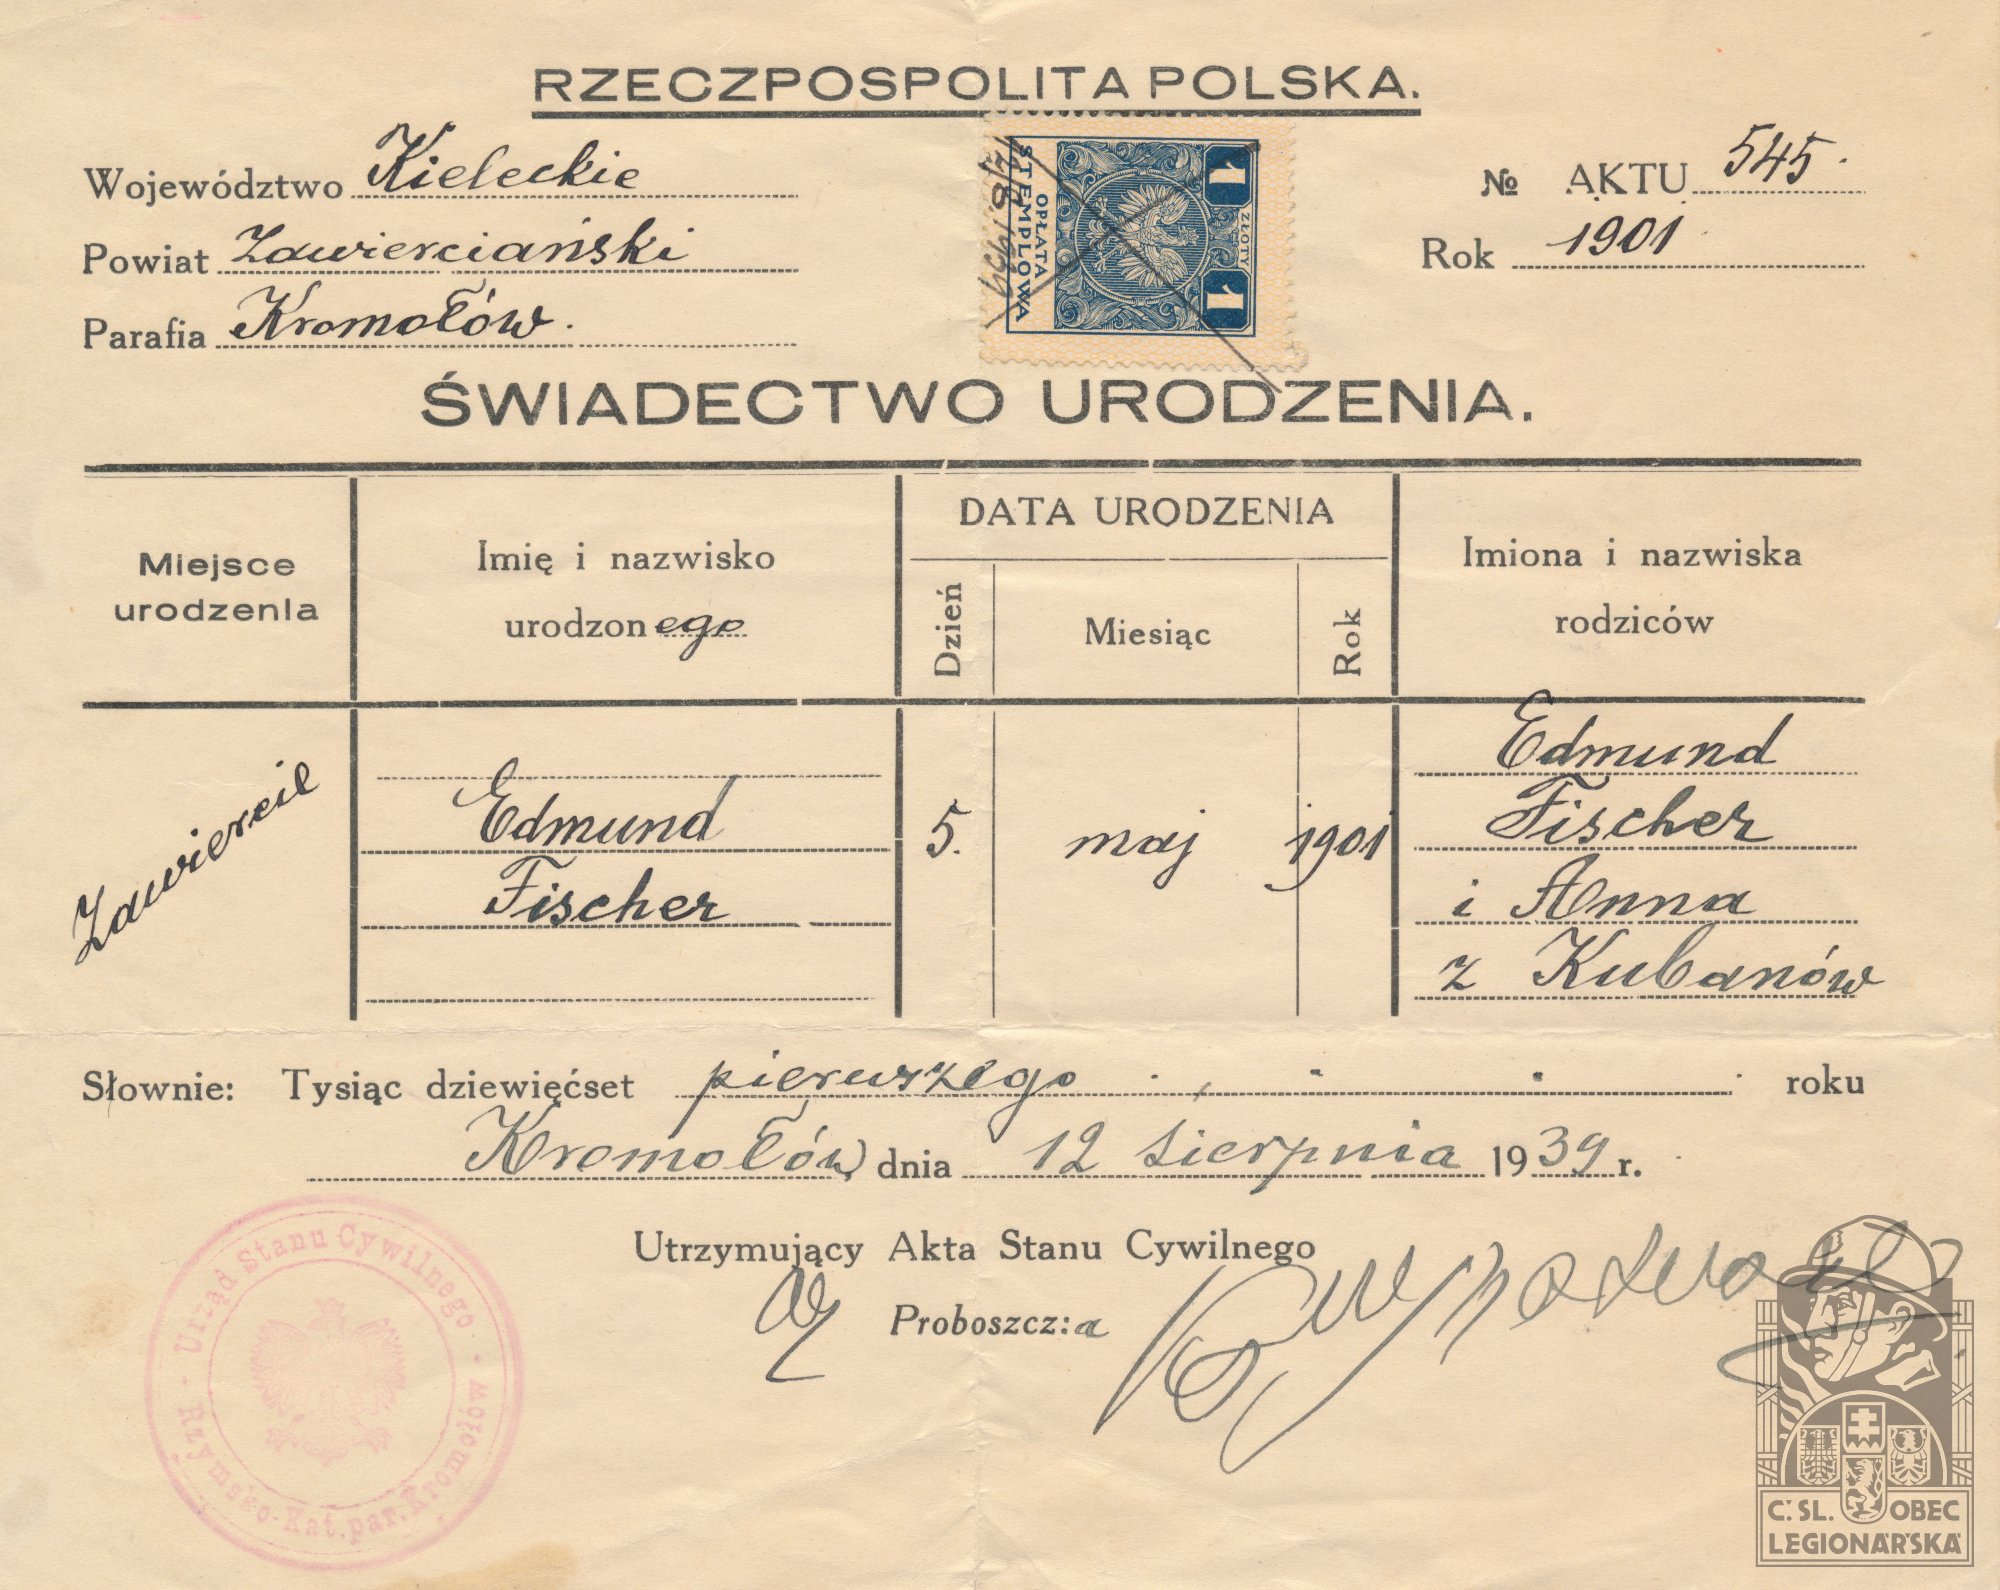 RZECZPOSPOLITA POLSKA.
Województwo Kieleckie
Powiat Zawierciański
Parafia Kromołów.
1 ZŁOTY 1
OPŁATA
STEMPLOWA
12/8 1939
№ AKTU 545.
Rok 1901
ŚWIADECTWO URODZENIA.
Miejsce
urodzenia
Imię i nazwisko
urodzonego
DATA URODZENIA
Dzień
Miesiąc
Rok
Imiona i nazwiska
rodziców
Edmund
Fischer
5.
maj
1901
Edmund
Fischer
i Anna
z Kubanów
Słownie: Tysiąc dziewięćset pierwszego roku
Kromołów, dnia 12 sierpnia 1939 r.
Utrzymujący Akta Stanu Cywilnego
Proboszcz:a
Urząd Stanu Cywilnego
Rzymsko-Kat. par. Kromołów
Č.SL. OBEC
LEGIONÁŘSKÁ